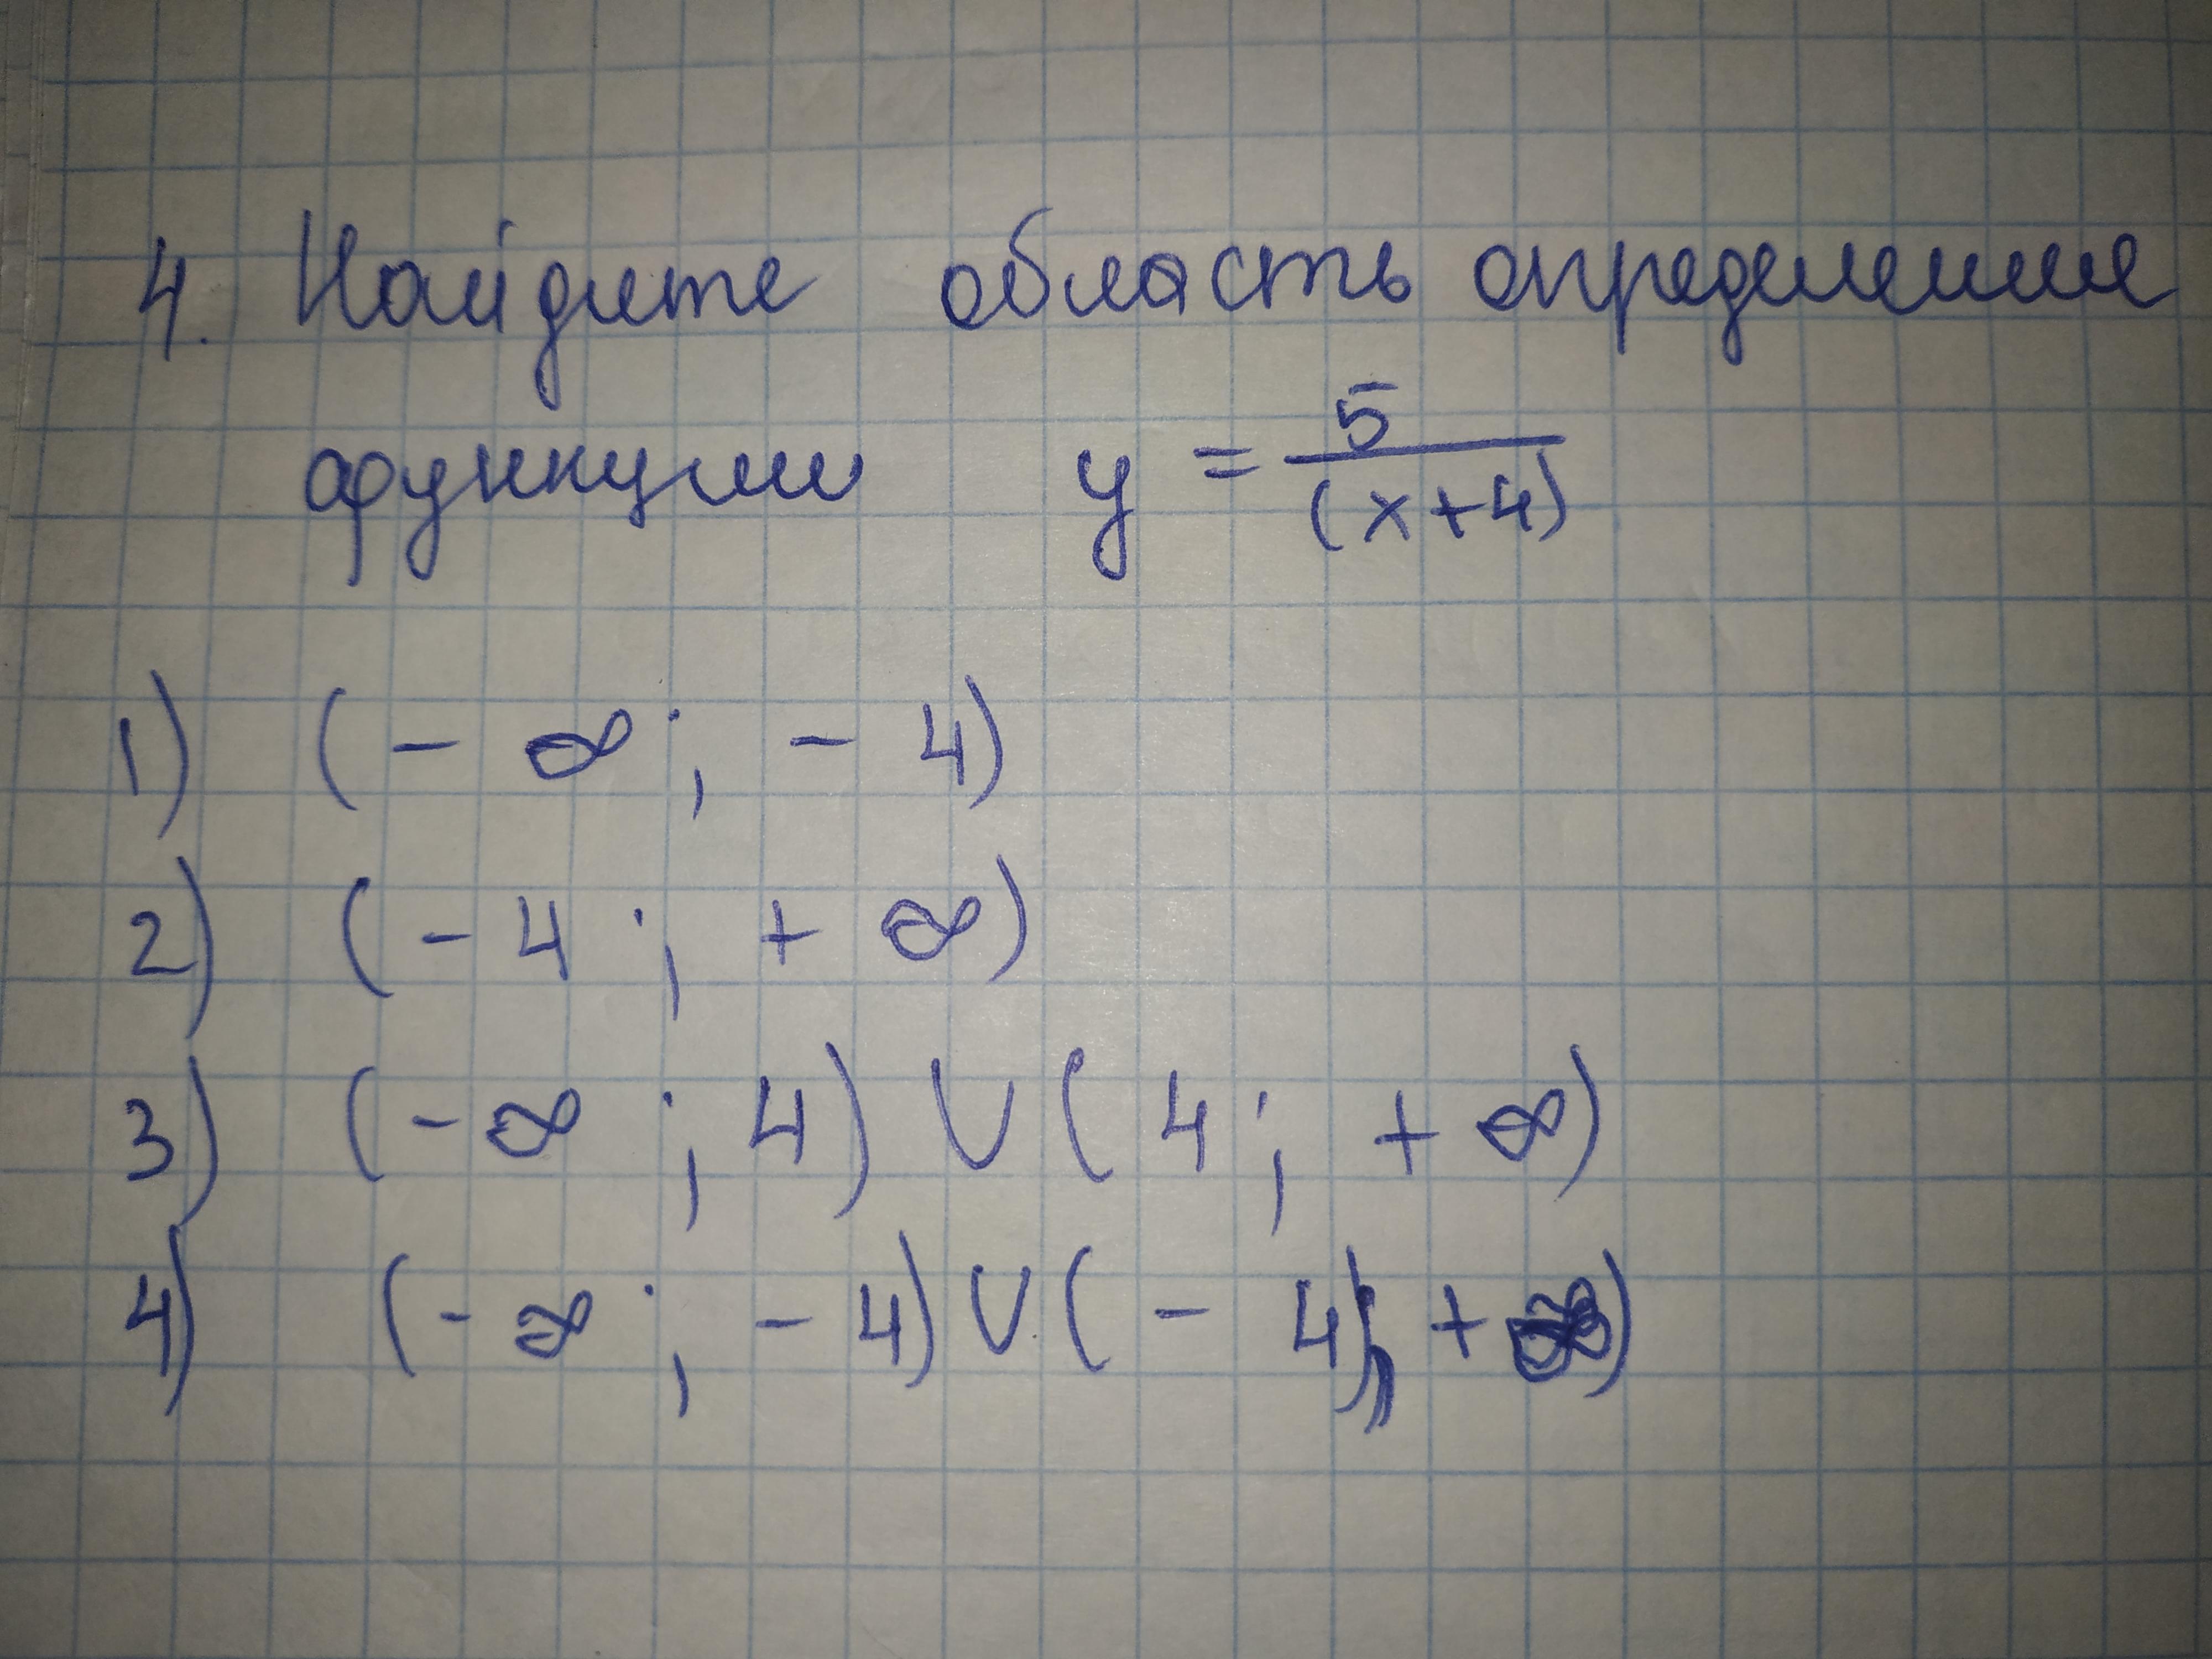 4. Найдите область определение
функции y = 5/(x+4)
1) (- ∞ ; - 4)
2) (- 4 ; + ∞)
3) (- ∞ ; 4) ∪ (4 ; + ∞)
4) (- ∞ ; - 4) ∪ (- 4; + ∞)